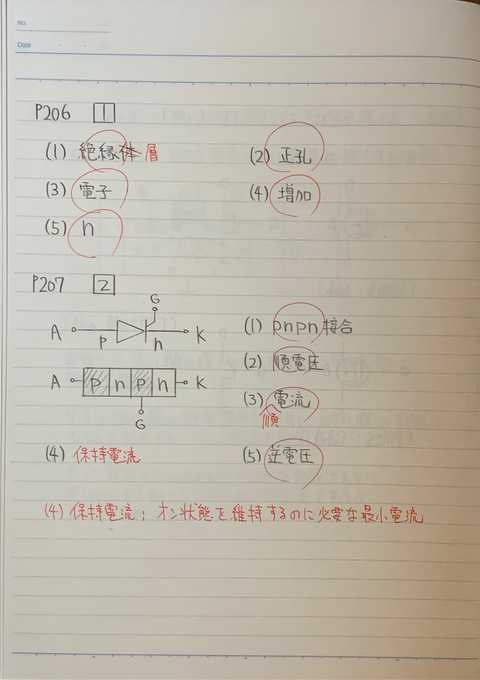 No.
Date
P206 1
(1) 絶縁体 層
(2) 正孔
(3) 電子
(4) 増加
(5) n
P207 2
G
A K
p n
A p n p n K
G
(1) pnpn接合
(2) 順電圧
(3) 電流
順
(4) 保持電流
(5) 逆電圧
(4) 保持電流; オン状態を維持するのに必要な最小電流